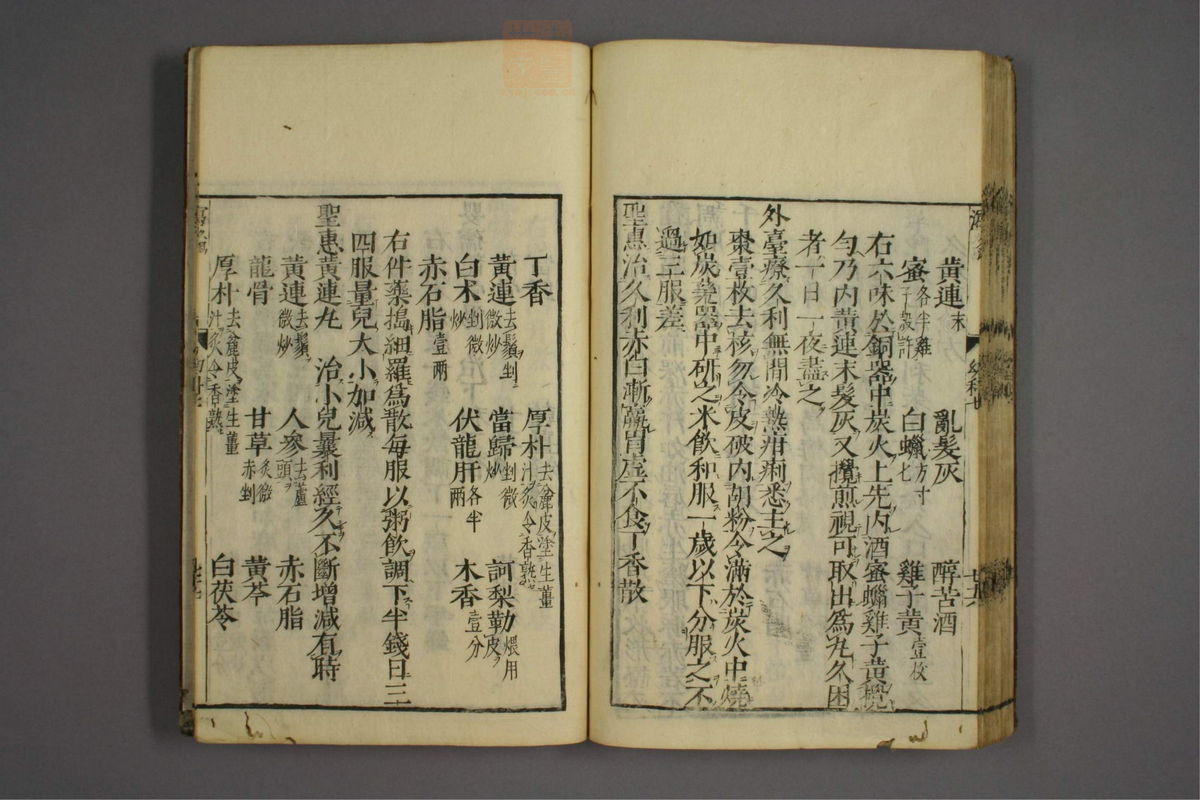 黄連末 亂髮灰 醇苦酒
蜜各半雞子殼許 白蠟方寸匕 雞子黄壹枚
右六味於銅器中炭火上先内酒蜜蠟雞子黄攪
勻乃内黄連末髮灰又攪煎視可取出爲丸久困
者十日一夜盡之
外臺療久利無問冷熱疳痢悉主之
棗壹枚去核勿令皮破内胡粉令滿於炭火中燒
如炭甆器中研之米飲和服一歲以下分服之不
過三服差
聖惠治久利赤白漸羸胃虚不食丁香散
丁香 厚朴去麄皮塗生薑汁炙令香熟
黄連去鬚剉微炒 當歸剉微炒 訶梨勒煨用皮
白术剉微炒 伏龍肝各半兩 木香壹分
赤石脂壹兩
右件藥搗細羅爲散每服以粥飲調下半錢日三
四服量兒大小加減
聖惠黄連丸 治小兒暴利經久不斷增減有時
黄連去鬚微炒 人參去蘆頭 赤石脂
龍骨 甘草炙微赤剉 黄芩
厚朴去麄皮塗生薑汁炙令香熟 白茯苓